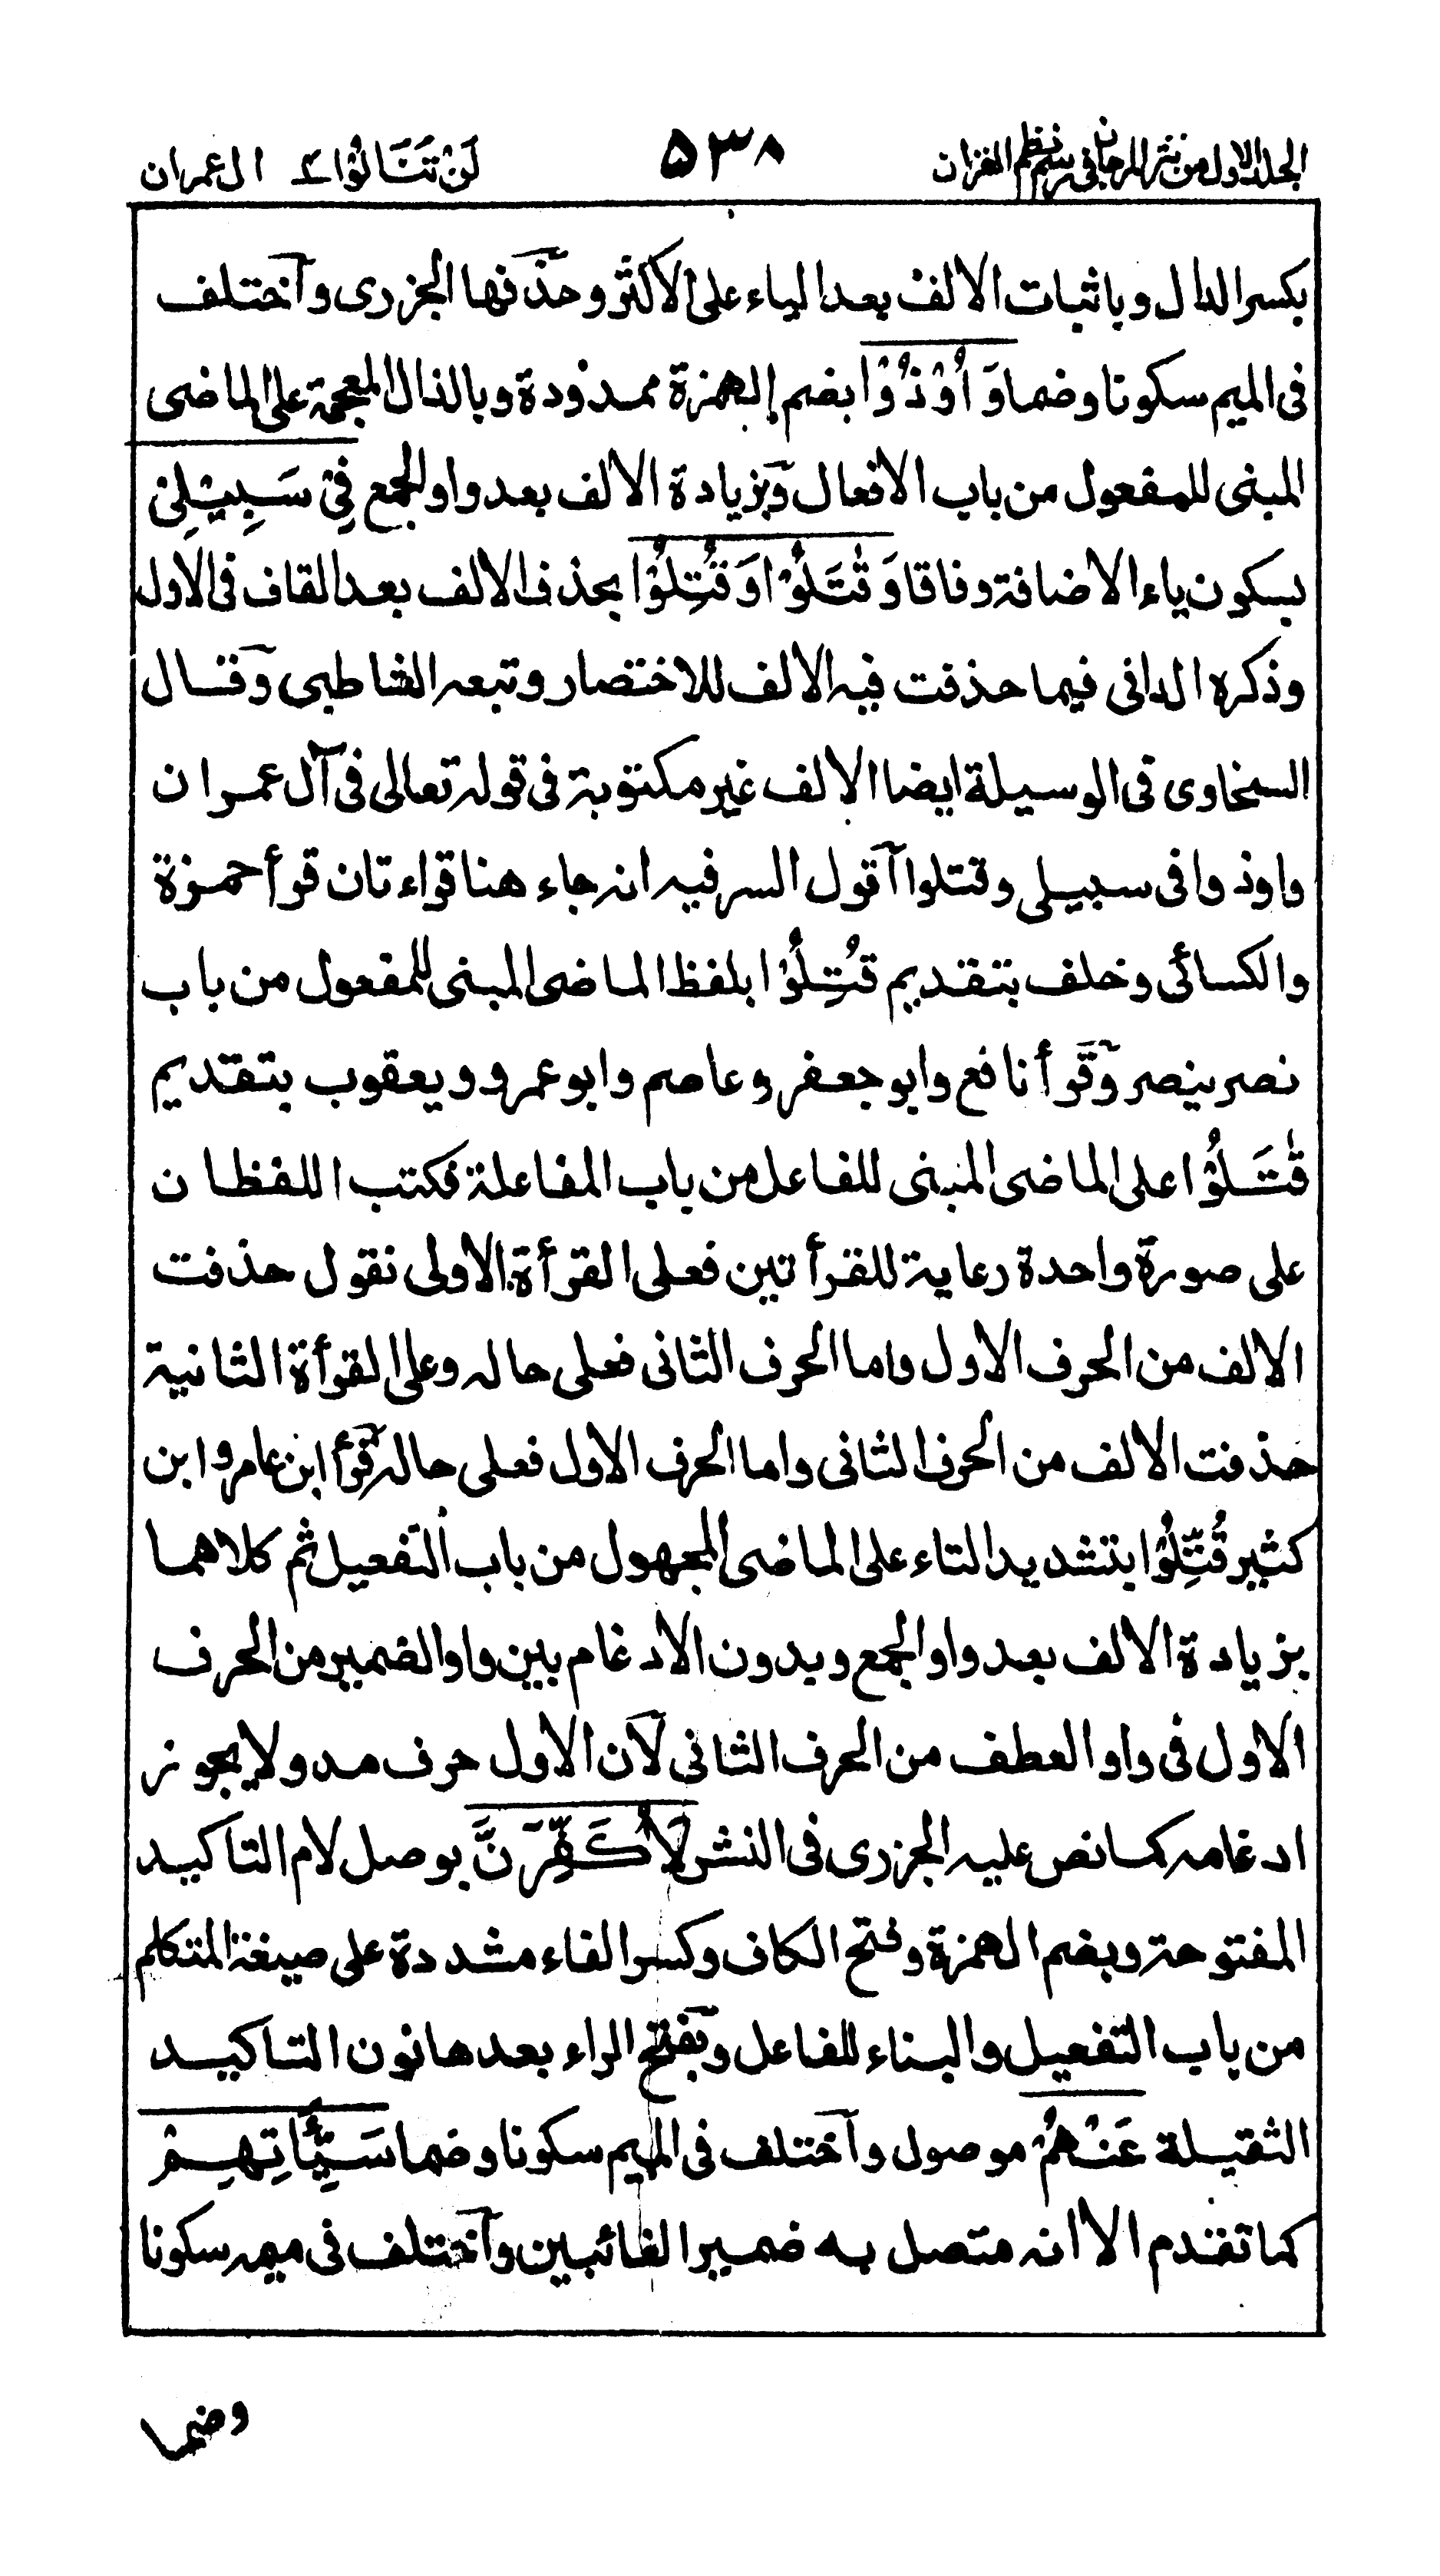 الجلد الاول من نثر المرجان في رسم نظم القران
٥٣٨
لَنْ تَنَالُوْا ٤ ال عمران
بكسر الدال وباثبات الالف بعد الياء على الاكثر وحذفها الجزرى وآختلف
فى الميم سكونا وضما وَاُوْذُوْا بضم الهمزة ممدودة وبالذال المعجمة على الماضى
المبنى للمفعول من باب الافعال وبزيادة الالف بعد واو الجمع فِىْ سَبِيْلِىْ
بسكون ياء الاضافة وفاقا وَقٰتَلُوْا وَقُتِلُوْا بحذف الالف بعد القاف فى الاول
وذكره الدانى فيما حذفت فيه الالف للاختصار وتبعه الشاطبى وقال
السخاوى فى الوسيلة ايضا الالف غير مكتوبة فى قوله تعالى فى آل عمران
واوذوا فى سبيلى وقتلوا آقول السر فيه انه جاء هنا قراءتان قرأ حمزة
والكسائى وخلف بتقديم قُتِلُوْا بلفظ الماضى المبنى للمفعول من باب
نصر ينصر وقرأ نافع وابو جعفر وعاصم وابو عمرو ويعقوب بتقديم
قٰتَلُوْا على الماضى المبنى للفاعل من باب المفاعلة فكتب اللفظان
على صورة واحدة رعاية للقرأتين فعلى القرأة الاولى نقول حذفت
الالف من الحرف الاول واما الحرف الثانى فعلى حاله وعلى القرأة الثانية
حذفت الالف من الحرف الثانى واما الحرف الاول فعلى حاله قرأ ابن عامر وابن
كثير قُتِّلُوْا بتشديد التاء على الماضى المجهول من باب التفعيل ثم كلاهما
بزيادة الالف بعد واو الجمع وبدون الادغام بين واو الضمير من الحرف
الاول فى واو العطف من الحرف الثانى لآن الاول حرف مد ولا يجوز
ادغامه كما نص عليه الجزرى فى النشر لَاُكَفِّرَنَّ بوصل لام التاكيد
المفتوحة وبضم الهمزة وفتح الكاف وكسر الفاء مشددة على صيغة المتكلم
من باب التفعيل والبناء للفاعل وبفتح الراء بعدها نون التاكيد
الثقيلة عَنْهُمْ موصول وآختلف فى الميم سكونا وضما سَيِّاٰتِهِمْ
كما تقدم الا انه متصل به ضمير الغائبين وآختلف فى ميمه سكونا
وضما